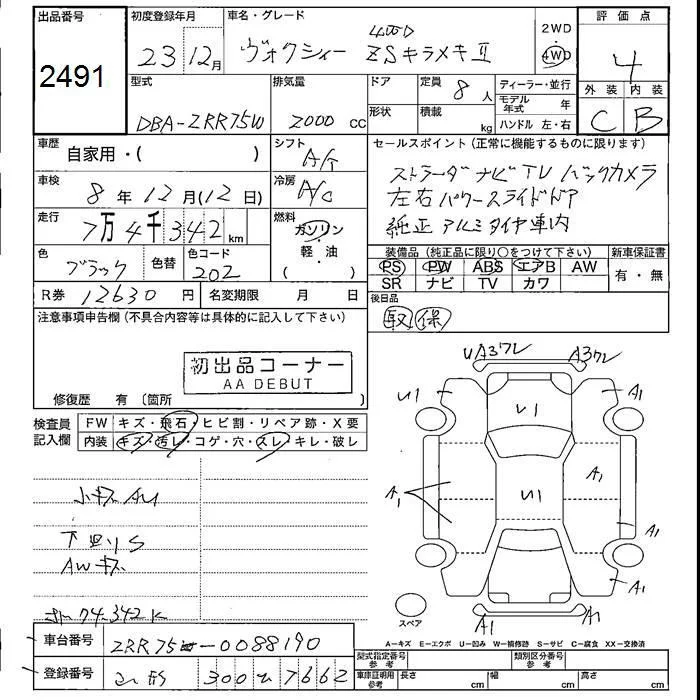 出品番号
2491
初度登録年月
23年12月
車名・グレード
4WD
ヴォクシィー ZSキラメキⅡ
2WD
4WD
評価点
4
外装 内装
C B
型式
DBA-ZRR75W
排気量
2000 cc
ドア
形状
定員
8人
積載
kg
ディーラー・並行
モデル年式 年
ハンドル 左・右
車歴
自家用・( )
シフト
A/T
セールスポイント(正常に機能するものに限ります)
ストラーダナビ TV バックカメラ
左右パワースライドドア
純正アルミタイヤ車内
車検
8年12月(12日)
冷房
A/C
走行
7万4千342 km
燃料
ガソリン
・
軽油
( )
色
ブラック
色替
色コード
202
装備品(純正品に限り〇をつけて下さい)
新車保証書
PS PW ABS エアB AW
有・無
SR ナビ TV カワ
R券 12630円
名変期限 月 日
後日品
取 保
注意事項申告欄(不具合内容等は具体的に記入して下さい)
初出品コーナー
AA DEBUT
修復歴 有 〔箇所 〕
検査員
記入欄
FW キズ・飛石・ヒビ割・リペア跡・X要
内装 キズ・汚レ・コゲ・穴・スレ・キレ・破レ
小キズAU
下廻りS
AWキズ
74.342K
UA3ワレ A3ワレ
U1 A1
U1
A1
A1
U1
A1
A1
A1
A1
スペア
A-キズ E-エクボ U-凹み W-補修跡 S-サビ C-腐食 XX-交換済
車台番号
ZRR75-0088190
登録番号
300 7662
型式指定番号
参考
類別区分番号
参考
車庫証明用
参考
長さ cm
幅 cm
高さ cm